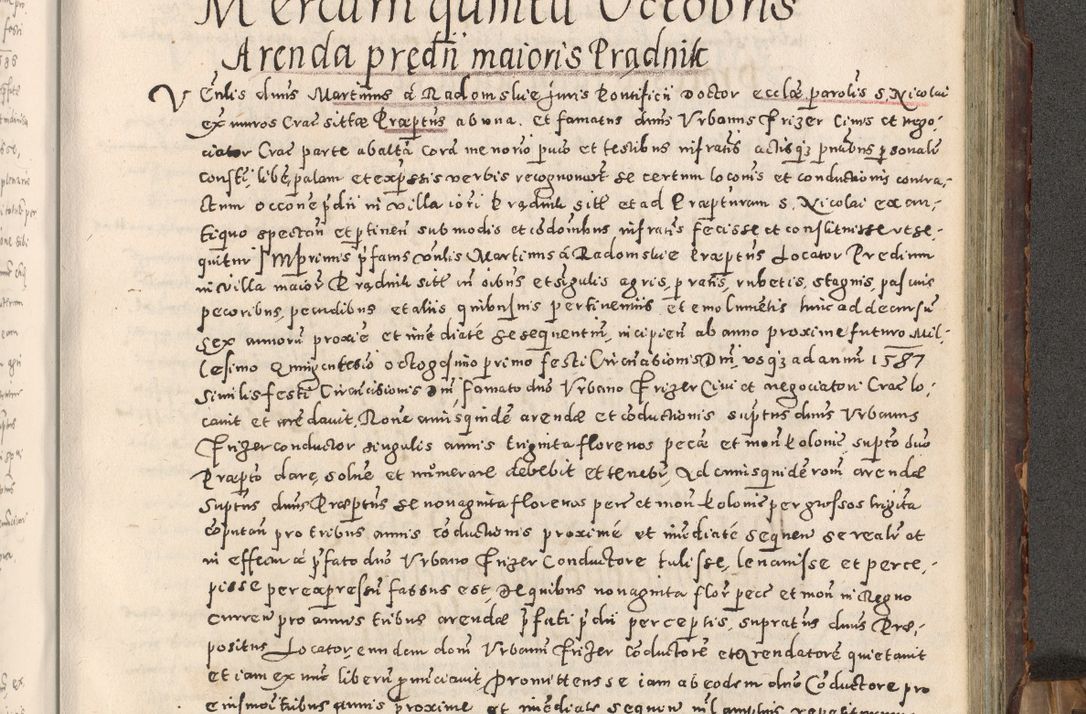 Mercurii quinta Octobris
Arenda prędii maioris Prądnik
Venlis dnus Martinus á Radomskie Juris Pontificii Doctor ecclæ parolis S. Nicolai
ex muros Crac sittæ Præptus ab una. et famatus dnus Urbanus Frizer Civis et nego,
ciator Crac parte ab altã corã me norio puco et testibus infratis actisqz pntibus psonalr
constti, libe, palam et expssis verbis recognoverut se certum loconis et conductionis contra,
ctum occone pdii in villa iori Prądnik sitt et ad Præpturam S. Nicolai ex an,
tiquo spectan et ptinen sub modis et codonibus infratis fecisse et constituisse ut se,
quitur Imprimis pfatus Vnlis Martinus á Radomskie Præptus Locator Predium
in villa maiori Prądnik sitt in oibus et sigulis agris, pratis, rubetis, stagnis, pascuis
pecoribus, pecudibus et aliis quibusuis pertinentiis et emolumetis huic ad decursu
sex annoru proxie et imediaté se sequentiu, incipien ab anno proxime futuro Mil,
lesimo Quingentesio octogesimo primo festi Circucisionis Dni usqz ad annu 1587
similis festi Circucisionis Dni famato dno Urbano Frizer Civi et negociatori Crac lo,
cauit et arędauit, Rone cuiusquidé arendæ et coductionis suptus dnus Urbanus
Frizer conductor singulis annis triginta florenos pecæ et mon Polonic supto dno
Præpto dare, soluę et numerare debebit et tenebir, Ad cuiusquidem rom arendæ
suptus dnus Præptus se nonaginta florenos pece et mon Polonic per grossos trigita
coputan pro tribus annis coductionis proximé et imediaté sequen se realr at
in effectu á pfato dno Urbano Frizer Conductore tulisse, leuauisse et perce,
pisse per expressu fassus est, De quibus nonaginta flor pece et mon in Regno
curren pro annis tribus arendæ pfati pdii perceptis, supratus dnus Præ,
positus Locator, eundem dom Urbanu Frizer coductore et Arendatore quietauit
et iam ex nuc liberu pnuciauit, Promittens se iam ab eodem dno Coductore pro
eiusmoi tribus annis proxime et imediate sequen